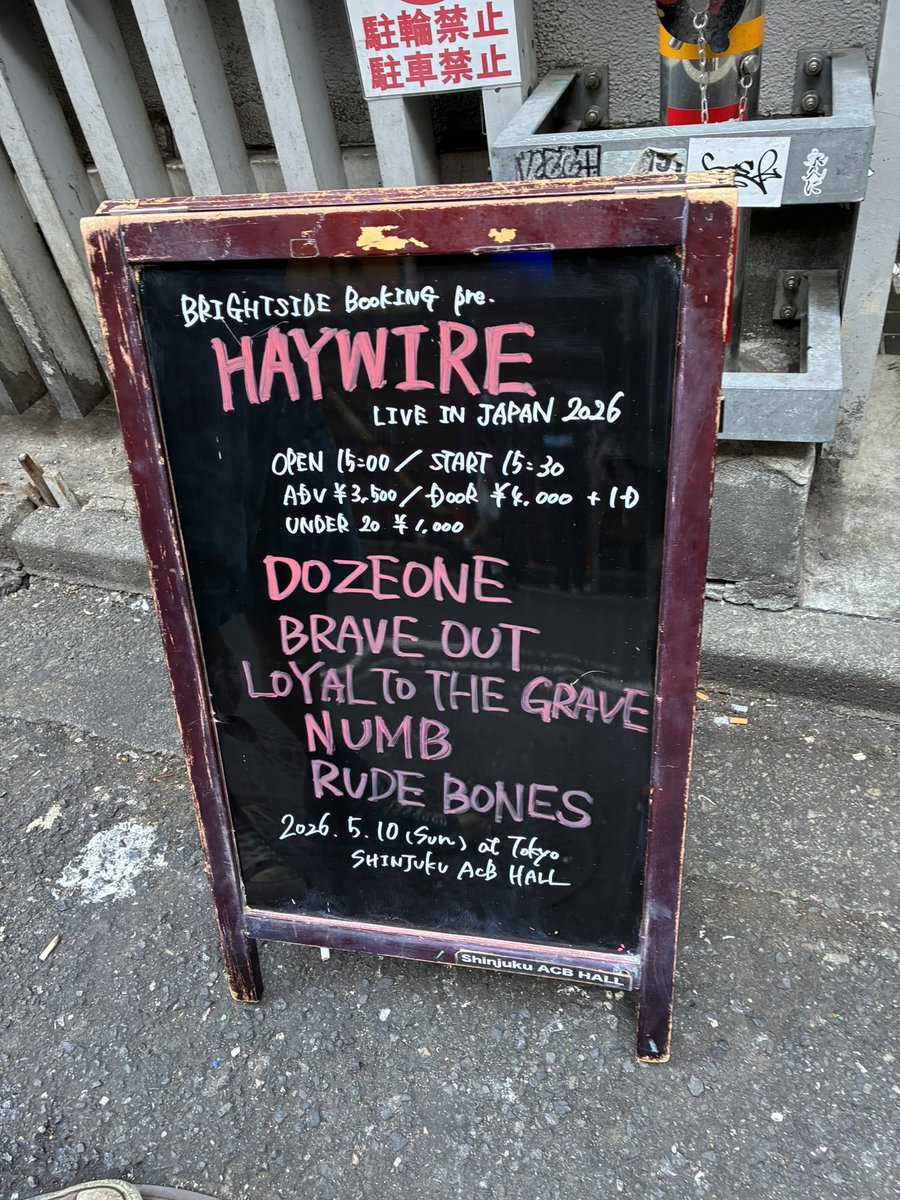 駐輪禁止
駐車禁止
永久に
BRIGHTSIDE BOOKING pre.
HAYWIRE
LIVE IN JAPAN 2026
OPEN 15:00 / START 15:30
ADV ¥3,500 / DOOR ¥4,000 + 1D
UNDER 20 ¥1,000
DOZEONE
BRAVE OUT
LOYAL TO THE GRAVE
NUMB
RUDE BONES
2026. 5. 10 (Sun) at Tokyo
SHINJUKU ACB HALL
Shinjuku ACB HALL